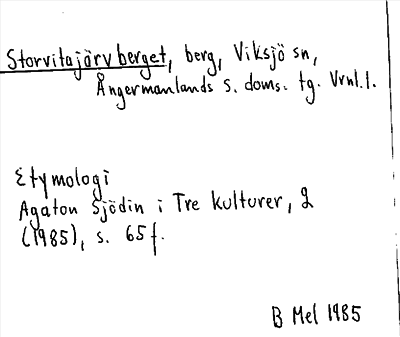 Storvitajörvberget, berg, Viksjö sn,
Ångermanlands s. doms. tg. Vrnl.l.
Etymologi
Agaton Sjödin i Tre kulturer, 2
(1985), s. 65f.
B Mel 1985